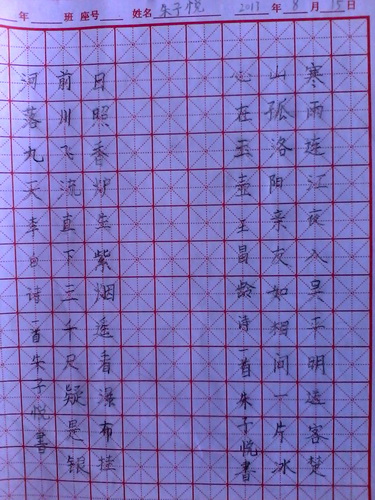 年 班 座号 姓名 朱子悦 2013 年 8 月 15 日
寒雨连江夜入吴平明送客楚
山孤洛阳亲友如相问一片冰
心在玉壶王昌龄诗一首朱子悦書
日照香炉生紫烟遥看瀑布挂
前川飞流直下三千尺疑是银
河落九天李白诗一首朱子悦書